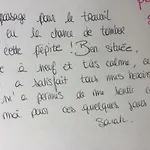 passage pour le travail
eu la chance de tomber
cette pépite ! Bien située,
à neuf et très calme, ce
a satisfait tous mes besoins
m'a permis de me sentir c
moi pour ces quelques jours
Sarah.